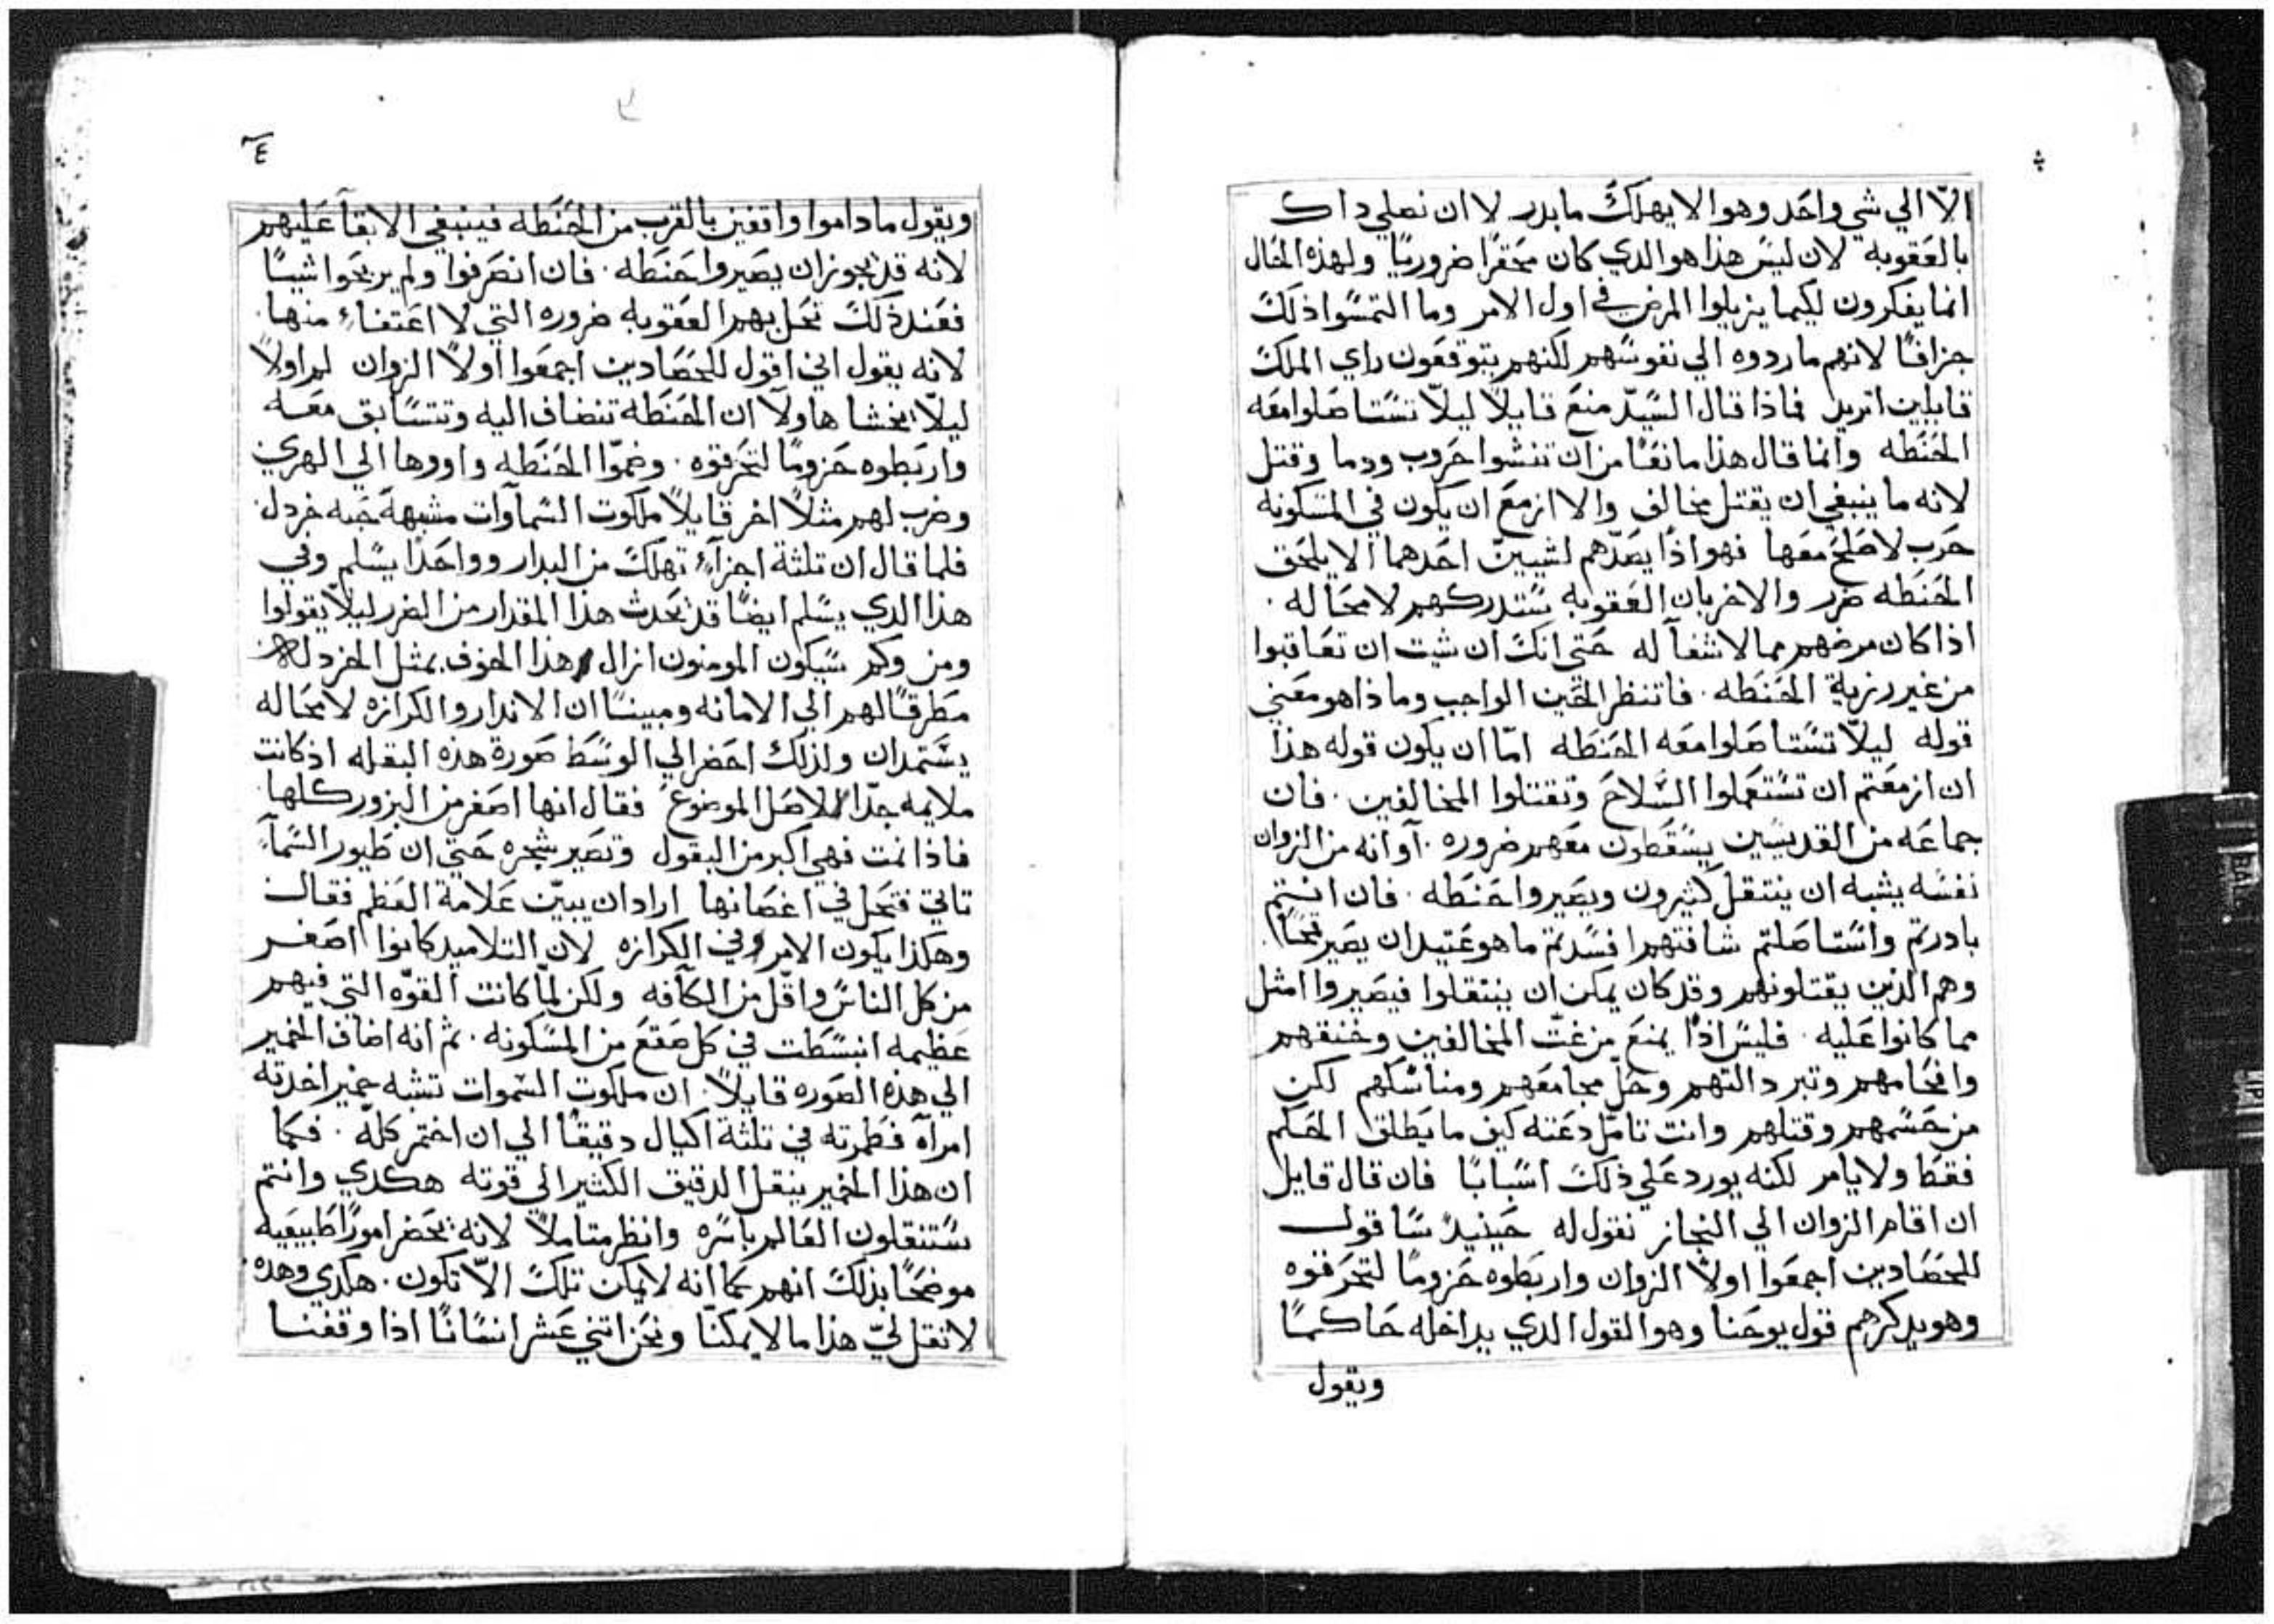 الّا الي شي واحد وهو الا يهلك ما بدر لا ان نصلي داك
بالعقوبه لان ليس هذا هو الدي كان محقرًا ضروريًا ولهذه الحال
انما يفكرون ليكما يزيلوا المرض في اول الامر وما التمسوا ذلك
جزافًا لانهم ما ردوه الي نفوسهم لكنهم يتوقعون راي الملك
قايلين اتريد فماذا قال السيّد منع قايلًا ليلّا تستاصلوا معه
الحنطه وانما قال هذا مانعًا من ان تنشوا حروب ودما وقتل
لانه ما ينبغي ان يقتل مخالف والا ازمع ان يكون في المسكونه
حرب لا صلح معها فهو اذًا يصدّهم لشيين احدهما الا يلحق
الحنطه ضرر والاخر بان العقوبه ستدركهم لا محاله ·
اذا كان مرضهم مما لا شفآ له حتي انك ان شيت ان تعاقبوا
من غير رزية الحنطه · فاتنظر الحين الواجب وما ذا هو معني
قوله ليلّا تستاصلوا معه الحنطه امّا ان يكون قوله هذا
ان ازمعتم ان تستعملوا السلاح وتقتلوا المخالفين · فان
جماعه من القديسين يسقطون معهم ضروره · او انه من الزوان
نفسه يشبه ان ينتقل كثيرون ويصيروا حنطه · فان انتم
بادرتم واستاصلتم شافتهم افسدتم ما هو عتيد ان يصير قمحًا ·
وهم الذين يقتلونهم وقد كان يمكن ان ينتقلوا فيصيروا امثل
مما كانوا عليه · فليس اذًا يمنع من غتّ المخالفين وخنقهم
وافحامهم وتبرد التهم وحلّ مجامعهم ومناسكهم لكن
من حسمهم وقتلهم وانت تامّل دعته كيف ما يطلق الحكم
فقط ولا يامر لكنه يورد علي ذلك اسبابًا فان قال قايل
ان اقام الزوان الي النجاز نقول له حينيدٍ ساقول
للحصادين اجمعوا اولًا الزوان واربطوه حزومًا لتحرقوه
وهو يدكرهم قول يوحنا وهو القول الدي يداخله حاكمًا
ويقول
٤
ويقول ما داموا واقفين بالقرب من الحنطه فينبغي الابقآ عليهم
لانه قد يجوز ان يصيروا حنطه · فان انصرفوا ولم يربحوا شيئًا
فعند ذلك تحل بهم العقوبه ضروره التي لا اعتفاء منها ·
لانه يقول اني اقول للحصادين اجمعوا اولًا الزوان لم اولًا
ليلّا يخشا هاولآ ان الحنطه تنضاف اليه وتتسابق معه
واربطوه حزومًا لتحرقوه · وضمّوا الحنطه واووها الي الهري
وضرب لهم مثلًا اخر قايلًا ملكوت السماوات مشبهة حبه خردل ·
فلما قال ان تلثة اجزآء تهلك من البدار وواحدًا يسلم وفي
هذا الدي يسلم ايضًا قد يحدث هذا المقدار من الضرر ليلّا يقولوا
ومن وكم سيكون المومنون ازال هذا الخوف بمثل الخردل
مطرقًا لهم الي الامانه ومبينًا ان الاندار والكرازه لا محاله
يستمدان ولذلك احضر الي الوسط صورة هذه البقله اذ كانت
ملايمه جدًّا للاصل الموضوع فقال انها اصغر من البزور كلها ·
فاذا نمت فهي اكبر من البقول وتصير شجره حتي ان طيور السمآء
تاتي فتحل في اغصانها اراد ان يبيّن علامة العظم فقال
وهكذا يكون الامر وفي الكرازه لان التلاميد كانوا اصغر
من كل الناس واقلّ من الكآفه ولكن لمّا كانت القوّه التي فيهم
عظيمه انبسطت في كل صقع من المسكونه · ثم انه اضاف الخمير
الي هذه الصوره قايلًا · ان ملكوت السموات تشبه خمير اخدته
امرآه فطمرته في تلثة اكيال دقيقًا الي ان اختمر كلّه · فكما
ان هذا الخمير ينقل الدقيق الكثير الي قوته هكدي وانتم
ستنقلون العالم باسره وانظر متاملًا لانه يحضر امورًا طبيعيه
موضحًا بذلك انهم كما انه لا يمكن تلك الّا تكون · هكدي وهده ·
لا تقل ليّ هذا ما لا يمكنّا ونحن اتني عشر انسانًا اذا وقفنا